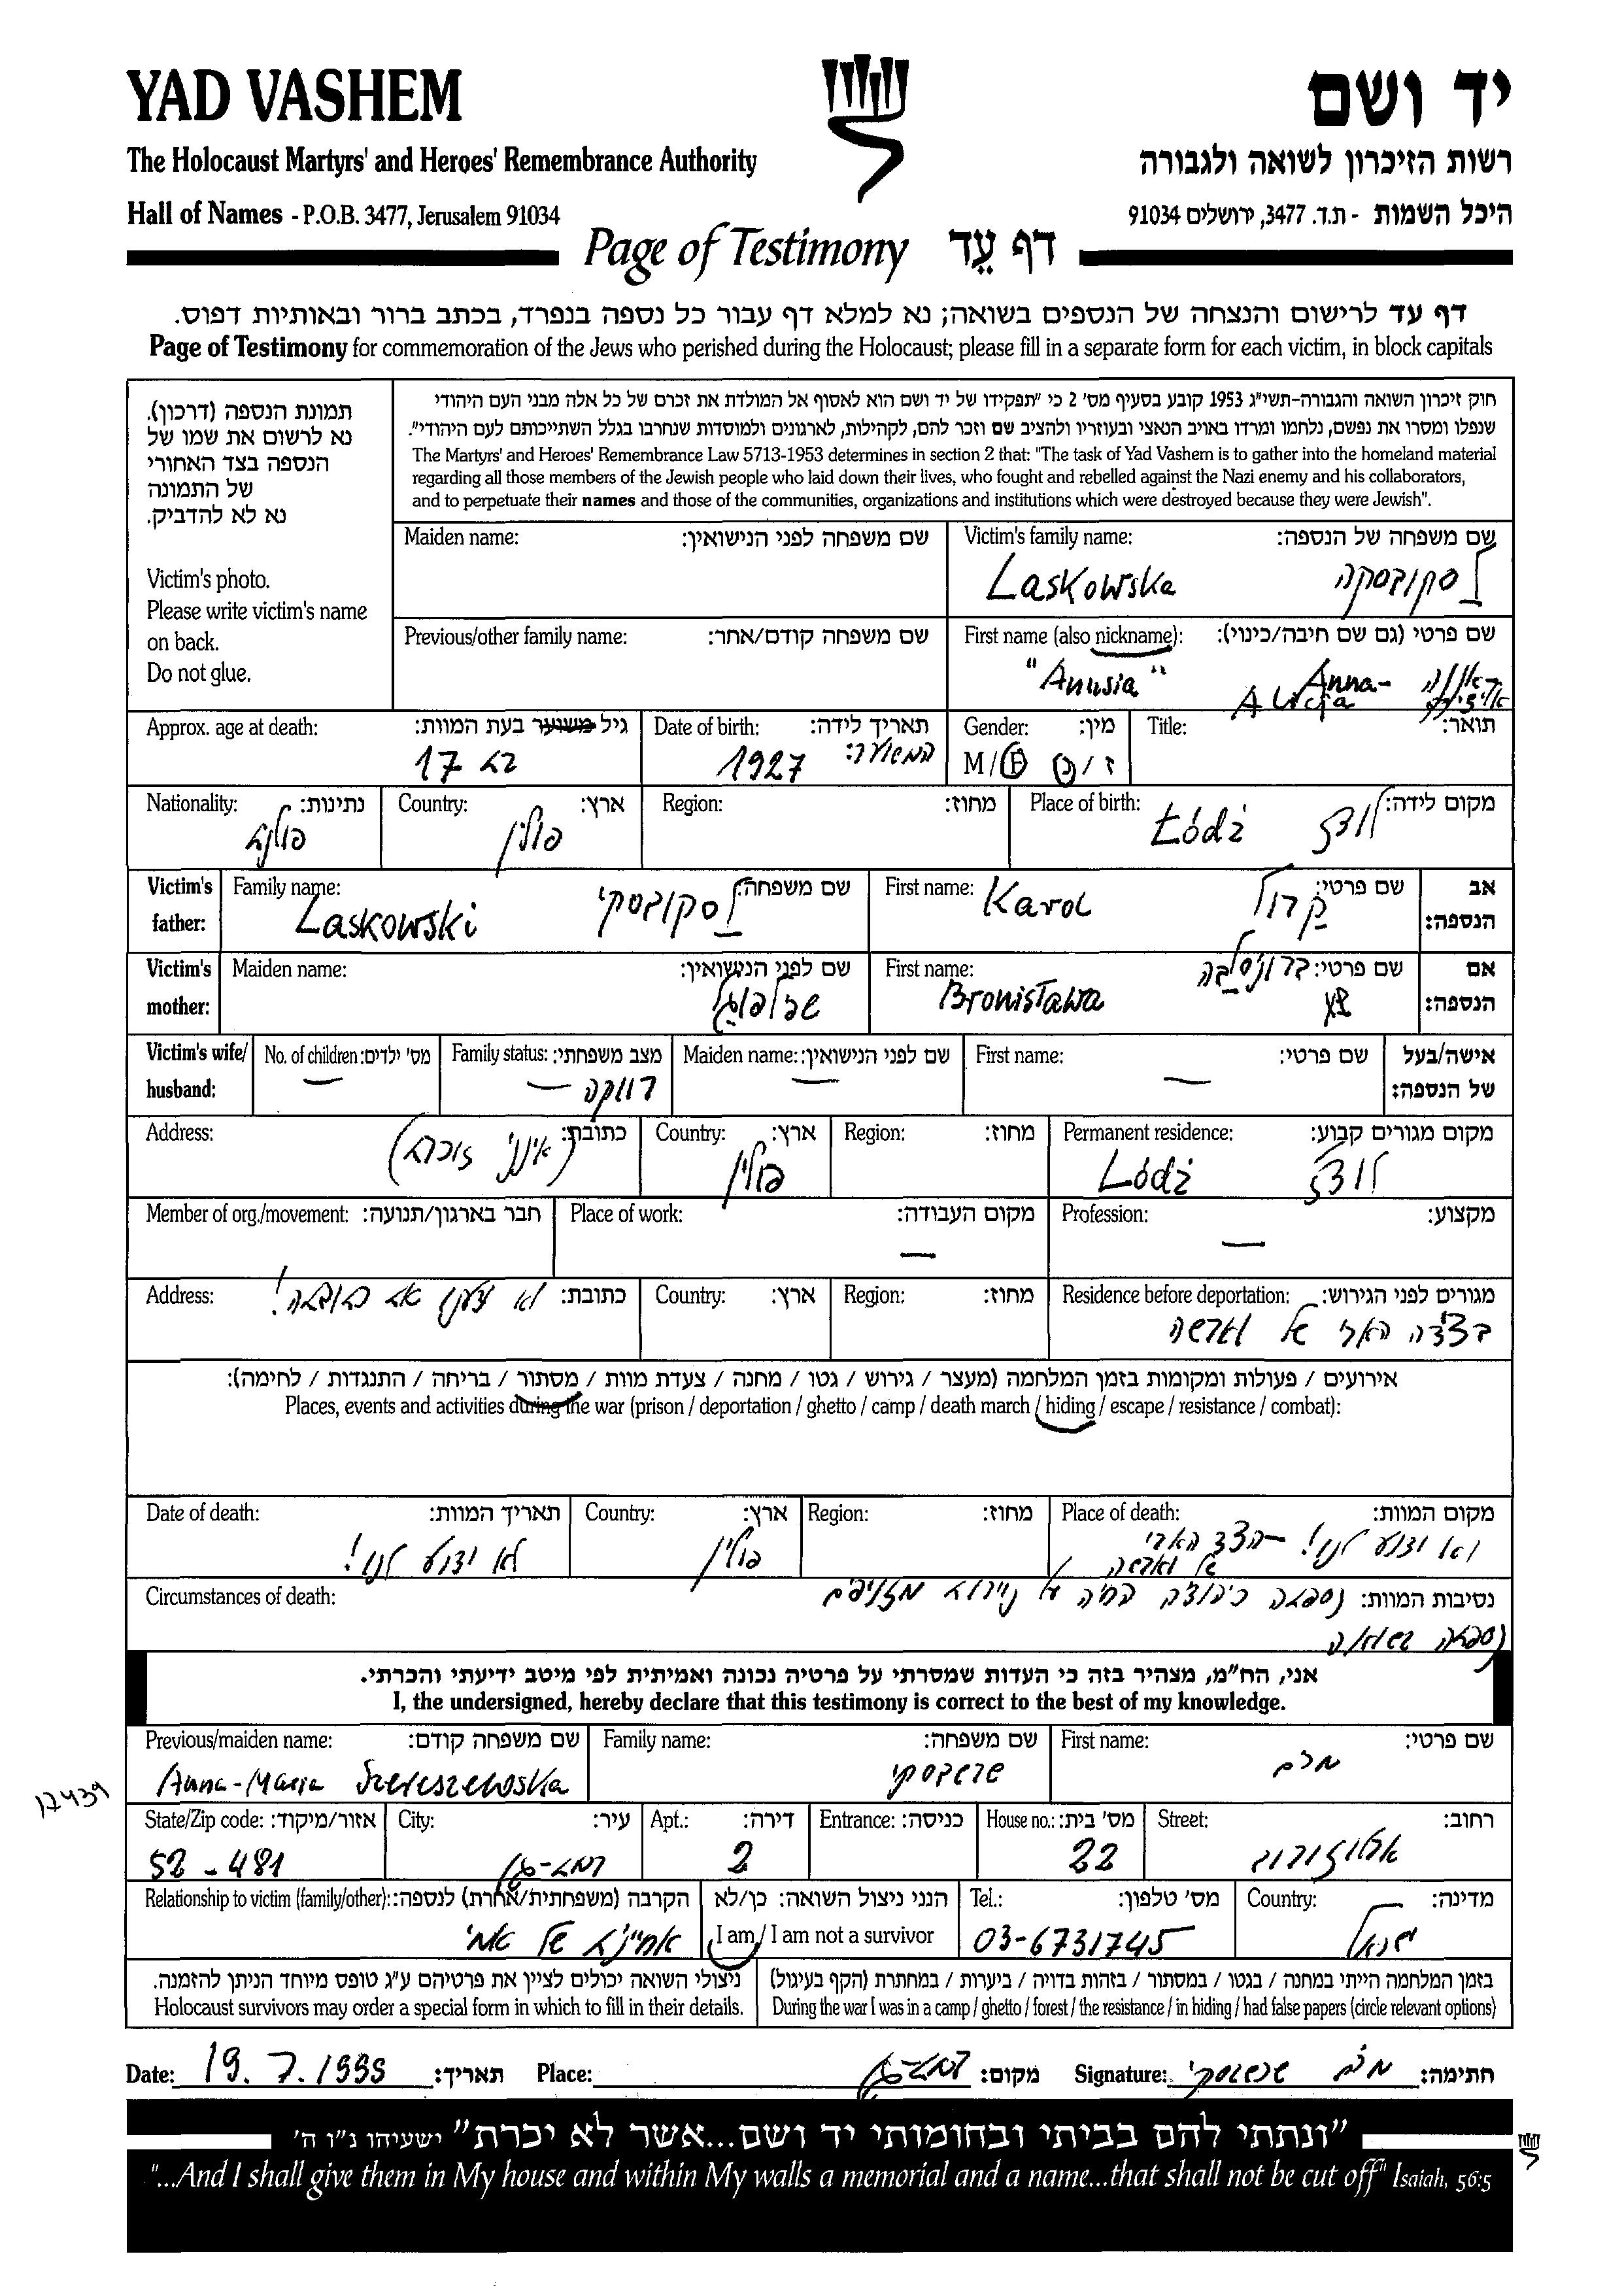 YAD VASHEM
יד ושם
The Holocaust Martyrs' and Heroes' Remembrance Authority
רשות הזיכרון לשואה ולגבורה
Hall of Names - P.O.B. 3477, Jerusalem 91034
היכל השמות - ת.ד. 3477, ירושלים 91034
Page of Testimony דף עֵד
דף עד לרישום והנצחה של הנספים בשואה; נא למלא דף עבור כל נספה בנפרד, בכתב ברור ובאותיות דפוס.
Page of Testimony for commemoration of the Jews who perished during the Holocaust; please fill in a separate form for each victim, in block capitals
תמונת הנספה (דרכון).
נא לרשום את שמו של
הנספה בצד האחורי
של התמונה
נא לא להדביק.
Victim's photo.
Please write victim's name
on back.
Do not glue.
חוק זיכרון השואה והגבורה-תשי"ג 1953 קובע בסעיף מס' 2 כי "תפקידו של יד ושם הוא לאסוף אל המולדת את זכרם של כל אלה מבני העם היהודי
שנפלו ומסרו את נפשם, נלחמו ומרדו באויב הנאצי ובעוזריו ולהציב שם וזכר להם, לקהילות, לארגונים ולמוסדות שנחרבו בגלל השתייכותם לעם היהודי".
The Martyrs' and Heroes' Remembrance Law 5713-1953 determines in section 2 that: "The task of Yad Vashem is to gather into the homeland material
regarding all those members of the Jewish people who laid down their lives, who fought and rebelled against the Nazi enemy and his collaborators,
and to perpetuate their names and those of the communities, organizations and institutions which were destroyed because they were Jewish".
Maiden name: שם משפחה לפני הנישואין:
Victim's family name: שם משפחה של הנספה:
Laskowska לסקובסקה
Previous/other family name: שם משפחה קודם/אחר:
First name (also nickname): שם פרטי (גם שם חיבה/כינוי):
"Anusia" Anna- אנה
Alicja אליציה
Approx. age at death: גיל משוער בעת המוות:
בת 17
Date of birth: תאריך לידה:
1927 המשוער:
Gender: מין:
M / F ז / נ
Title: תואר:
Nationality: נתינות:
פולנית
Country: ארץ:
פולין
Region: מחוז:
Place of birth: מקום לידה:
Łódź לודז'
Victim's father:
Family name: שם משפחה:
Laskowski לסקובסקי
First name: שם פרטי:
Karol קרול
אב הנספה:
Victim's mother:
Maiden name: שם לפני הנישואין:
First name: שם פרטי:
Bronisława ברוניסלבה
אם הנספה:
Victim's wife/ husband:
No. of children: מס' ילדים:
—
Family status: מצב משפחתי:
רווקה —
Maiden name: שם לפני הנישואין:
—
First name: שם פרטי:
—
אישה/בעל של הנספה:
Address: כתובת:
(אינני זוכרת)
Country: ארץ:
פולין
Region: מחוז:
Permanent residence: מקום מגורים קבוע:
Lódź לודז'
Member of org./movement: חבר בארגון/תנועה:
Place of work: מקום העבודה:
—
Profession: מקצוע:
—
Address: כתובת:
לא ידענו את הכתובת!
Country: ארץ:
Region: מחוז:
Residence before deportation: מגורים לפני הגירוש:
בצד הארי של וארשה
אירועים / פעולות ומקומות בזמן המלחמה (מעצר / גירוש / גטו / מחנה / צעדת מוות / מסתור / בריחה / התנגדות / לחימה):
Places, events and activities during the war (prison / deportation / ghetto / camp / death march / hiding / escape / resistance / combat):
Date of death: תאריך המוות:
לא ידוע לנו!
Country: ארץ:
פולין
Region: מחוז:
Place of death: מקום המוות:
לא ידוע לנו! – הצד הארי
של וארשה
Circumstances of death: נסיבות המוות:
נספתה כיהודיה החיה על ניירות מזויפים
נספתה בשואה
אני, הח"מ, מצהיר בזה כי העדות שמסרתי על פרטיה נכונה ואמיתית לפי מיטב ידיעתי והכרתי.
I, the undersigned, hereby declare that this testimony is correct to the best of my knowledge.
Previous/maiden name: שם משפחה קודם:
Anna-Maria Szereszewska
Family name: שם משפחה:
שרשבסקי
First name: שם פרטי:
מרים
17439
State/Zip code: אזור/מיקוד:
52-481
City: עיר:
רמת-גן
Apt.: דירה:
2
Entrance: כניסה:
House no.: מס' בית:
22
Street: רחוב:
Relationship to victim (family/other): הקרבה (משפחתית/אחרת) לנספה:
אחיינית של אמי
הנני ניצול השואה: כן/לא
I am / I am not a survivor
Tel.: מס' טלפון:
03-6731745
Country: מדינה:
ישראל
ניצולי השואה יכולים לציין את פרטיהם ע"ג טופס מיוחד הניתן להזמנה.
Holocaust survivors may order a special form in which to fill in their details.
בזמן המלחמה הייתי במחנה / בגטו / במסתור / בזהות בדויה / ביערות / במחתרת (הקף בעיגול)
During the war I was in a camp / ghetto / forest / the resistance / in hiding / had false papers (circle relevant options)
Date: 19.7.1999 תאריך: Place: רמת-גן מקום: Signature: מרים שרשבסקי חתימה:
"ונתתי להם בביתי ובחומותי יד ושם...אשר לא יכרת" ישעיהו נ"ו ה'
"...And I shall give them in My house and within My walls a memorial and a name...that shall not be cut off" Isaiah, 56:5